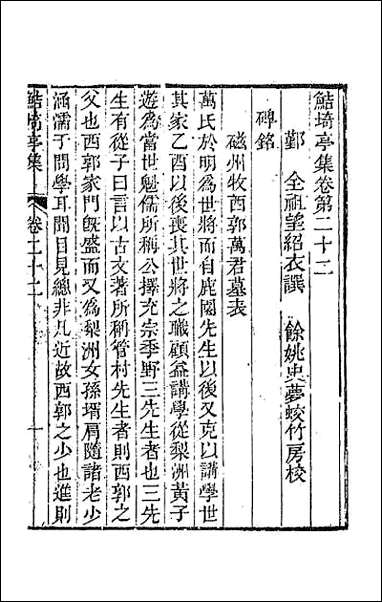 鮚埼亭集卷第二十二
鄞 全祖望紹衣譔 餘姚史夢蛟竹房校
碑銘
磁州牧西郭萬君墓表
萬氏於明爲世將而自鹿園先生以後又克以講學世
其家乙酉以後喪其世將之職顧益講學從梨洲黃子
遊爲當世魁儒所稱公擇充宗季野三先生者也三先
生有從子曰言以古文著所稱管村先生者則西郭之
父也西郭家門旣盛而又爲梨洲女孫壻肩隨諸老少
涵濡于問學耳聞目見總非凡近故西郭之少也進則
鮚埼亭集
卷二十二
一